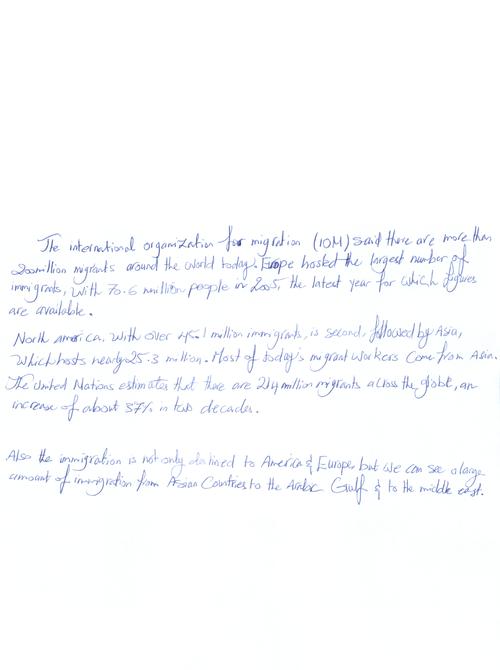 The international organization for migration (IOM) said there are more than
200million migrants around the world today. Europe hosted the largest number of
immigrants, with 70.6 million people in 2005, the latest year for which figures
are available.
North america, with over 45.1 million immigrants, is second, followed by Asia,
which hosts nearly 25.3 million. Most of today's migrant workers come from Asia.
The United Nations estimates that there are 214 million migrants across the globe, an
increase of about 37% in two decades.
Also the immigration is not only to America & Europe, but we can see a large
amount of immigration from Asian Countries to the Arabic Gulf & to the middle east.